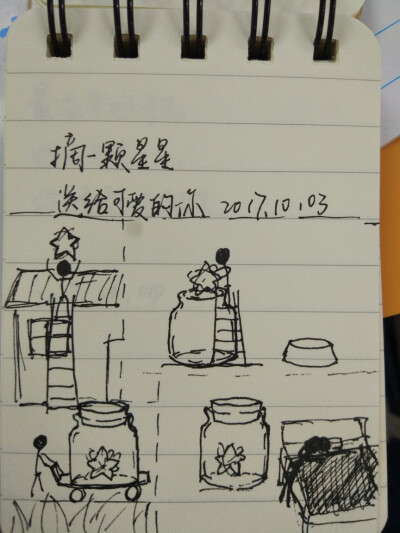 摘一颗星星
送给可爱的你 2017.10.03